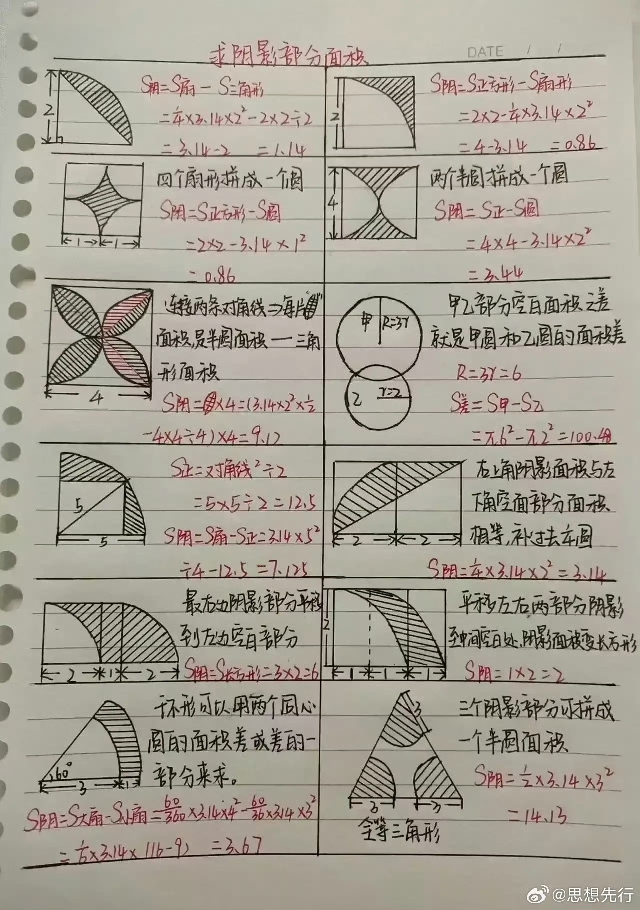 求阴影部分面积
DATE / /
S阴=S扇-S三角形
=¼×3.14×2²-2×2÷2
=3.14-2 =1.14
2
S阴=S正方形-S扇形
=2×2-¼×3.14×2²
=4-3.14 =0.86
2
四个扇形拼成一个圆
S阴=S正方形-S圆
=2×2-3.14×1²
=0.86
1 1
两个半圆拼成一个圆
S阴=S正-S圆
=4×4-3.14×2²
=3.44
4
连接两条对角线⇒每片
面积,是半圆面积一三角
形面积
S阴=×4=(3.14×2²×½
-4×4÷4)×4=9.12
4
甲乙部分空白面积之差
就是甲圆和乙圆的面积差
R=3r=6
S差=S甲-S乙
=π6²-π2²=100.48
甲 R=3r
乙 r=2
S正=对角线²÷2
=5×5÷2=12.5
S阴=S扇-S正=3.14×5²
÷4-12.5=7.125
5
5
右上角阴影面积与左
下角空面部分面积
相等,补过去车圆
S阴=¼×3.14×2²=3.14
2 2
最右边阴影部分平移
到左边空白部分
S阴=S长方形=3×2=6
2 1 2
平移左右两部分阴影
至中间空白处,阴影面积变长方形
S阴=1×2=2
2
1 1 1
干环形可以用两个同心
圆的面积差或差的一
部分来求。
60°
3 1
S阴=S大扇-S小扇=60/360×3.14×4²-60/36×3.14×3²
=⅙×3.14×(16-9) =3.67
三个阴影部分可拼成
一个半圆面积
S阴=½×3.14×3²
=14.13
3
3 3
全等三角形
@思想先行